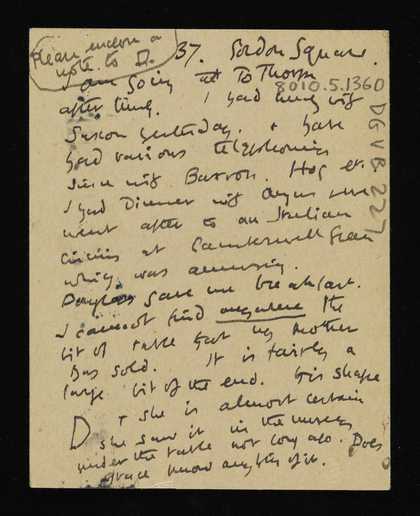 Please enclose a
note to D.
37. Gordon Square.
I am going to Thorpe
8010.5.1360
after lunch. I had lunch with
Saxon yesterday. & have
had various telephonings
since with Barron. Hog etc.
I had Dinner with Angus we
went after to an Italian
circus at Camberwell Green
which was amusing.
Douglas gave me breakfast.
I cannot find anywhere the
bit of table that my Mother
has sold. It is fairly a
large bit of the end. this shape
D & she is almost certain
she saw it in the
under the table not long ago. Does
Grace know anything of it.
DGVB 227